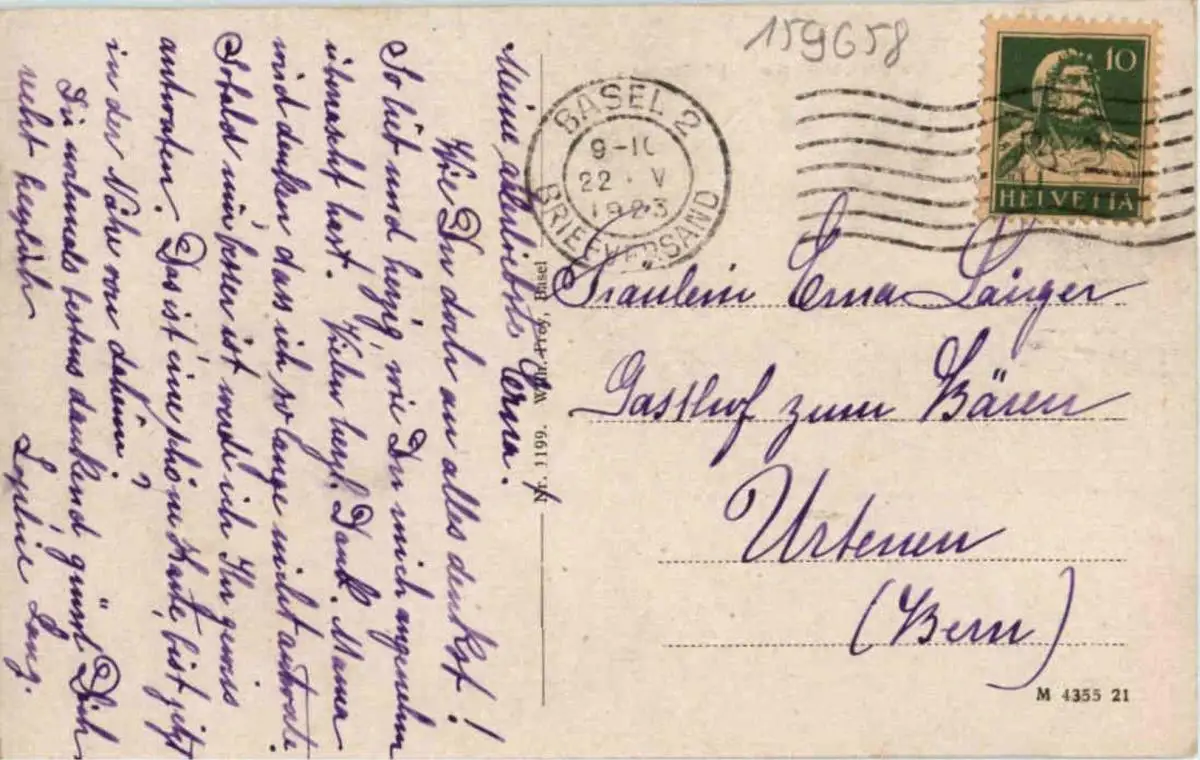 159658
10
HELVETIA
BASEL 2
9-10
22 . V
1923
BRIEFVERSAND
Meine allerliebste Erna.
Wie Du doch an alles denkst!
So lieb und herzig, wie Du mich angenehm
überrascht hast. Vielen herzl. Dank. Mama
wird denken dass ich so lange nicht antworte.
Sobald mir besser ist werde ich Ihr gewiss
antworten. Das ist eine schöne Karte, bist jetzt
in der Nähe von daheim?
Dir vielmals bestens dankend grüsst Dich
recht herzlich
Lang.
Nr. 1199. Basel
Fräulein Erna
Gasthof zum Bären
Urtenen
(Bern)
M 4355 21